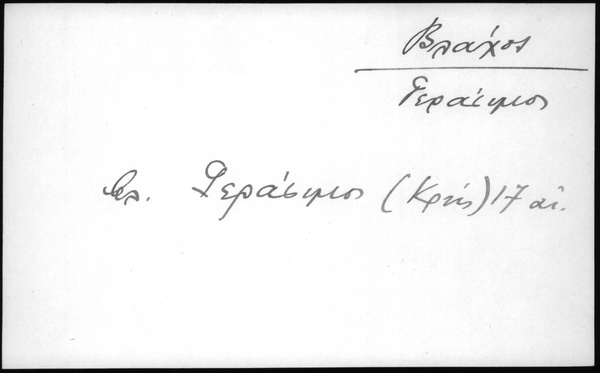 Βλάχος
Γεράσιμος
βλ. Γεράσιμος (Κρής) 17 αἰ.